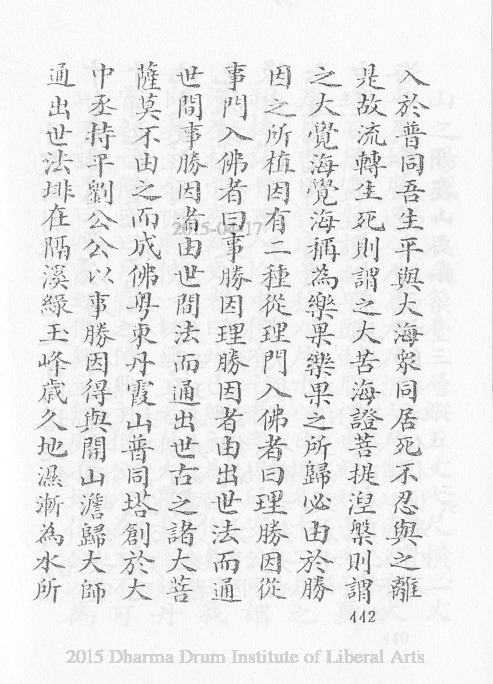 入於普同吾生平與大海眾同居死不忍與之離
是故流轉生死則謂之大苦海證菩提湼槃則謂
之大覺海覺海稱為樂果樂果之所歸必由於勝
因之所植因有二種從理門入佛者曰理勝因從
事門入佛者曰事勝因理勝因者由出世法而通
世間事勝因者由世間法而通出世古之諸大菩
薩莫不由之而成佛粵東丹霞山普同塔創於大
中丞持平劉公公以事勝因得與開山澹歸大師
通出世法埋在隔溪綠玉峰歲久地濕漸為水所
442
2015-04-17
2015 Dharma Drum Institute of Liberal Arts